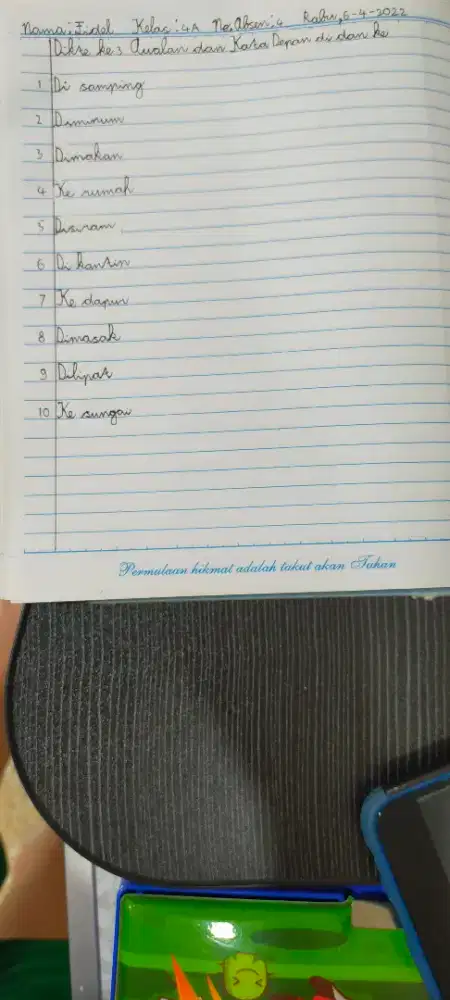 Nama: Fidel Kelas: 4A No. Absen: 4 Rabu, 6-4-2022
Dikte ke 3 Awalan dan Kata Depan di dan ke
1 Di samping
2 Diminum
3 Dimakan
4 Ke rumah
5 Disiram
6 Di kantin
7 Ke dapur
8 Dimasak
9 Dilipat
10 Ke sungai
Permulaan hikmat adalah takut akan Tuhan